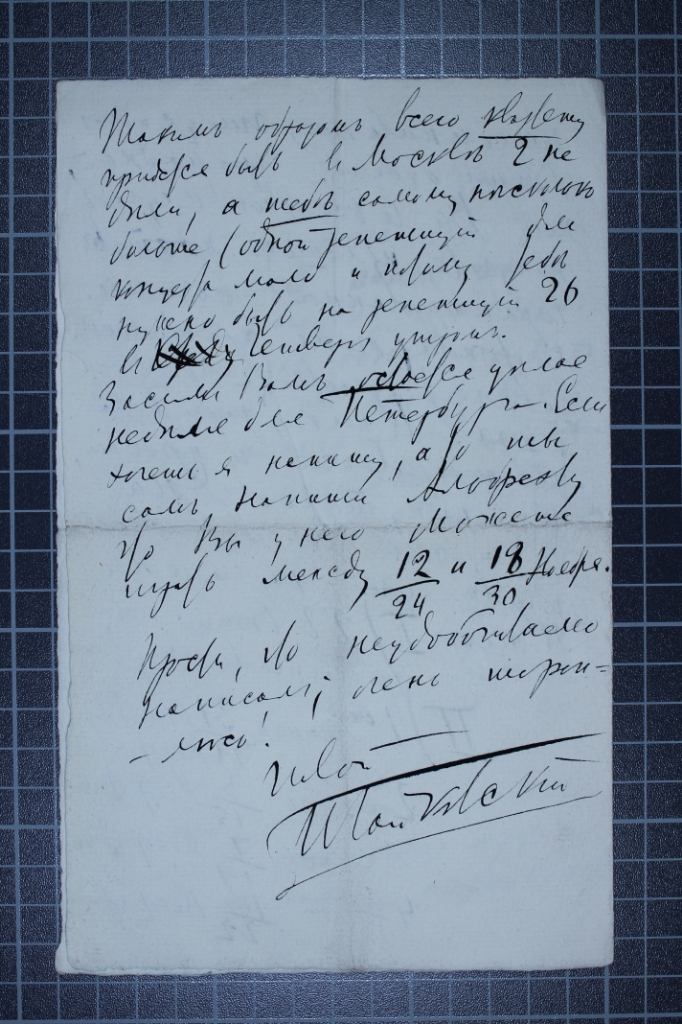 Такимъ образомъ всего квартету
придется быть въ Москвѣ 2 не
дѣли, а тебѣ самому нѣсколько
больше (одной репетиціи для
концерта мало и потому тебѣ
нужно быть на репетиціи 26
въ Четвергъ утромъ.
Засимъ Вамъ остается цѣлое
недѣля для Петербурга. Если
хочешь я напишу, а то ты
самъ напиши
что Вы у него можете
играть между 12/24 и 18/30 Ноября.
Прости, что неудобочитаемо
написалъ; очень тороп=
-люсь!
Твой
П Чайковскій